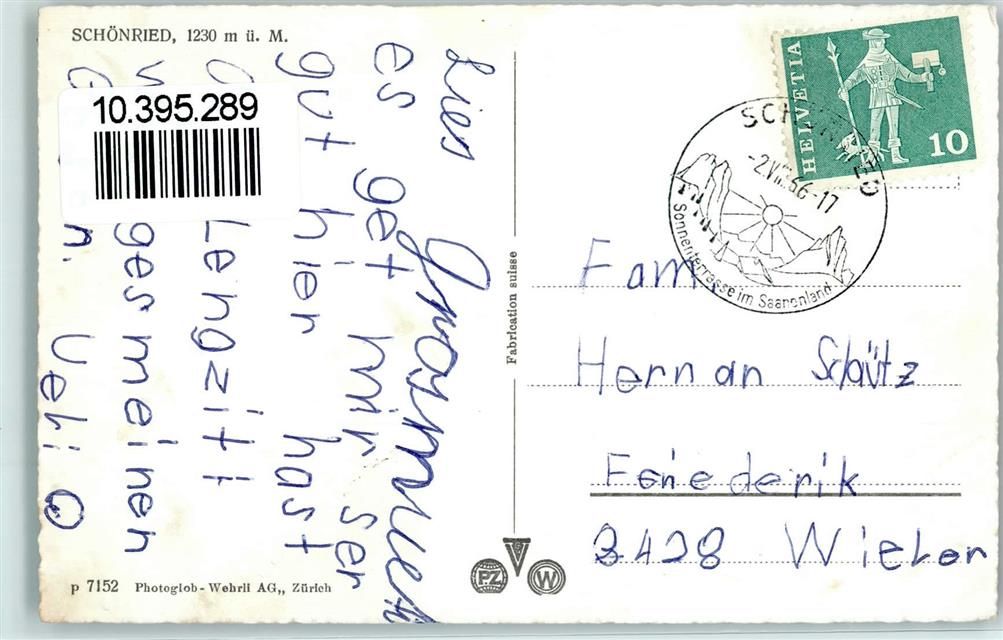 SCHÖNRIED, 1230 m ü. M.
10.395.289
Lies Grosmueti
es get mir ser
gut hier hast
Lengziti
gesmeinen
n. Ueli
p 7152 Photoglob-Wehrli AG,, Zürich
Fabrication suisse
PZ V W
HELVETIA
10
SCHÖNRIED
-2.VII.66-17
Sonnenterrasse im Saanenland
Fam.
Hernan Schütz
Feriederik
3428 Wieler